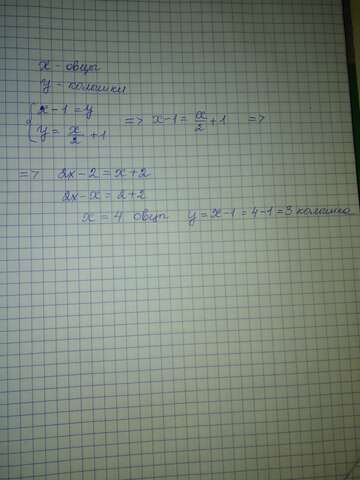 x - овцы
y - колышки
{ x-1=y
y= x/2 +1 => x-1= x/2 +1 =>
=> 2x-2=x+2
2x-x=2+2
x=4 овцы y=x-1=4-1=3 колышка